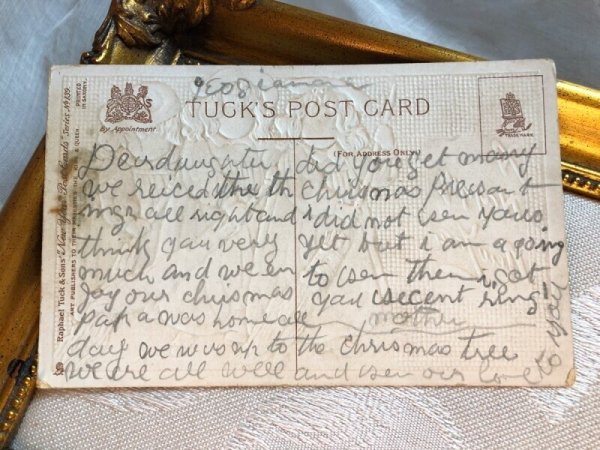 TUCK'S POST CARD
By Appointment.
(FOR ADDRESS ONLY)
TRADE MARK
PRINTED
IN SAXONY
Raphael Tuck & Sons' "New Year" Post Cards Series
ART PUBLISHERS TO THEIR MAJESTIES THE KING & QUEEN
Dear daughter
we reiced the th
ings all right and
think you very
much and we en
joy our chrismas
papa was home all
day we was up to the chrismas tree
we are all well and sen our love to you
did you get many
chrismas pressant
i did not sen yours
yet but i am a going
to sen them i got
you ring
mother